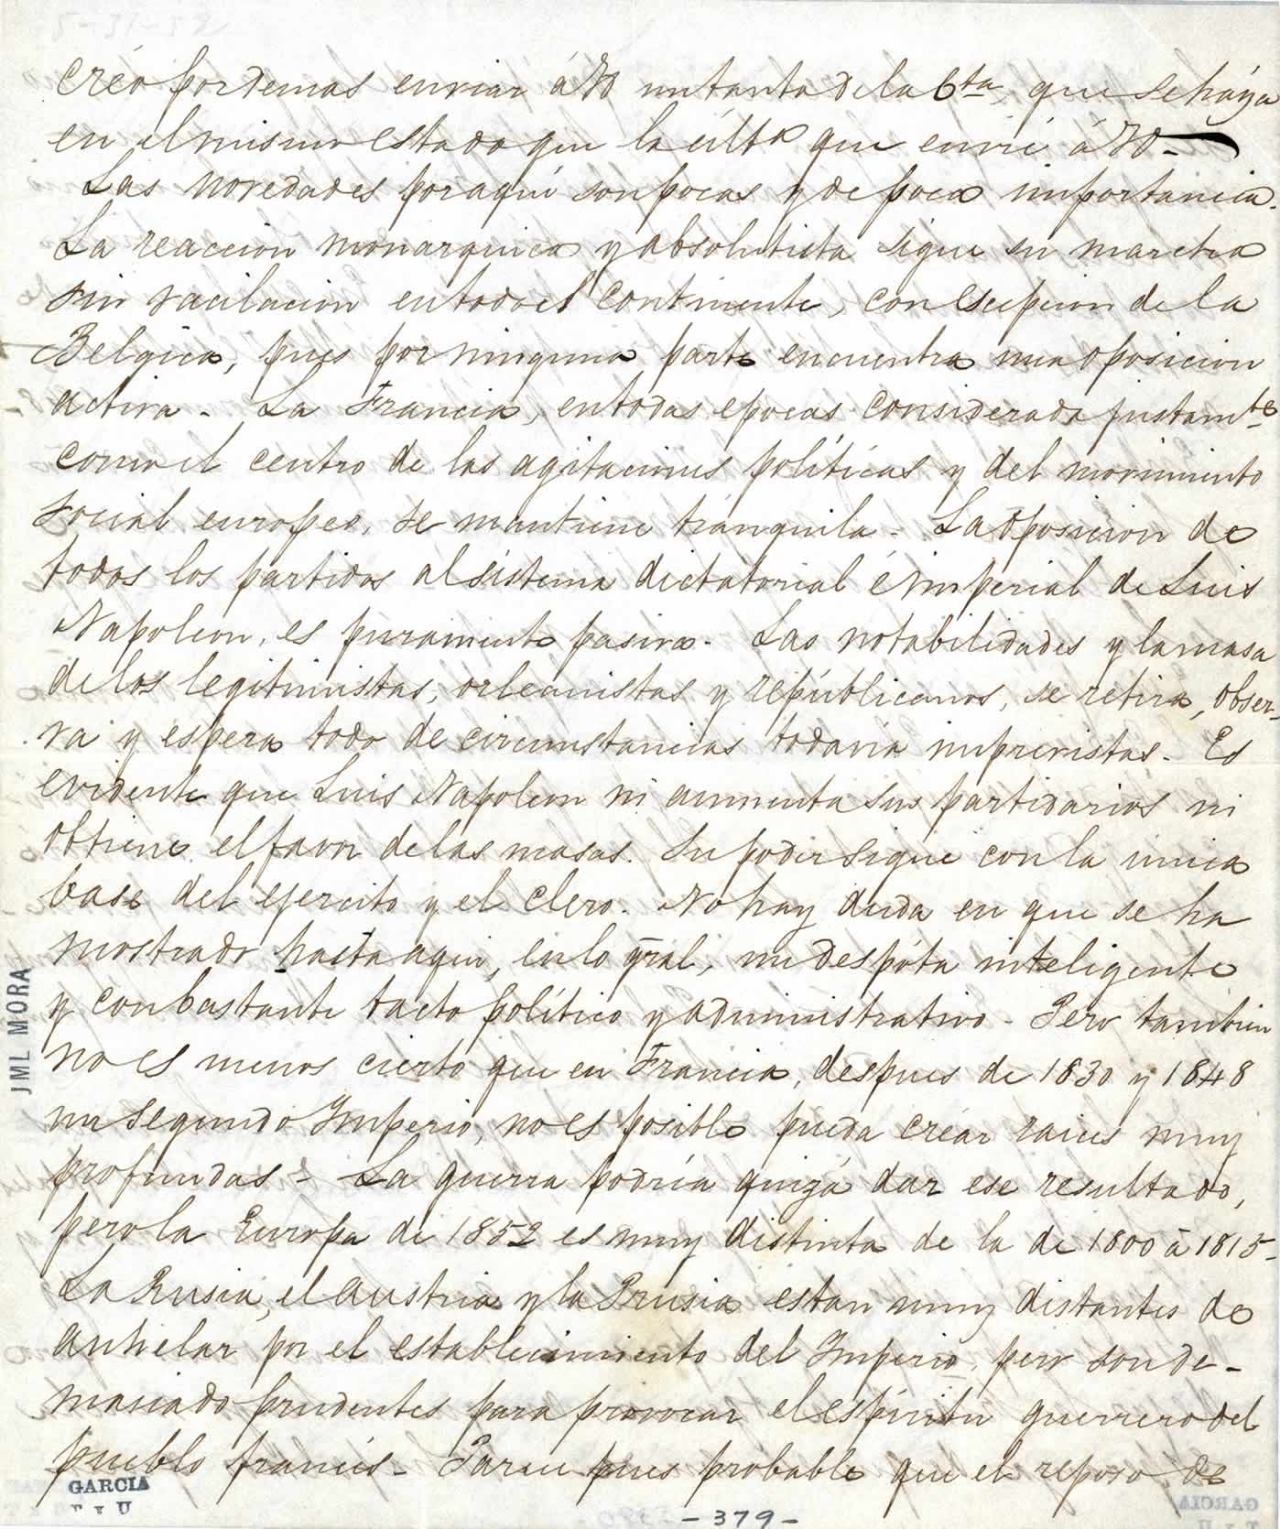 créo por demas enviar á Vd un tanto de la 6ta que se háya
en el mismo estado que la últa que envié á Vd -
Las novedades por aquí son pocas y de poca importancia.
La reaccion monarquica y absolutista sigue su marcha
sin vacilacion en todo el Continente, con escepcion de la
Belgica, pues por ninguna parte encuentra una oposicion
activa - La Francia, en todas epocas considerada justamte
como el centro de las agitaciones políticas y del movimiento
social europeo, se mantiene tranquila - La oposicion de
todos los partidos al sistema dictatorial é imperial de Luis
Napoleon, es puramente pasiva - Las notabilidades y la masa
de los legitimistas, orleanistas y républicanos, se retira, obser-
va y espera todo de circunstancias todavia imprevistas - Es
evidente que Luis Napoleon ni aumenta sus partidarios ni
obtiene el favor de las masas. Su poder sigue con la unica
base del ejercito y el clero. No hay duda en que se ha
mostrado hasta aqui, en lo gral, un despóta inteligente
y con bastante tacto político y administrativo - Pero tambien
no es menos cierto que en Francia, despues de 1830 y 1848
un segundo Imperio, no es posible pueda créar raices muy
profundas - La guerra podría quizá dar ese resultado,
pero la Europa de 1852 es muy distinta de la de 1800 á 1815 -
La Rusia, el Austria y la Prusia estan muy distantes de
anhelar por el establecimiento del Imperio, pero son de-
masiado prudentes para provocar el espíritu guerrero del
pueblo francés - Parece pues probable que el reposo de
JML MORA
GARCIA
- 379 -